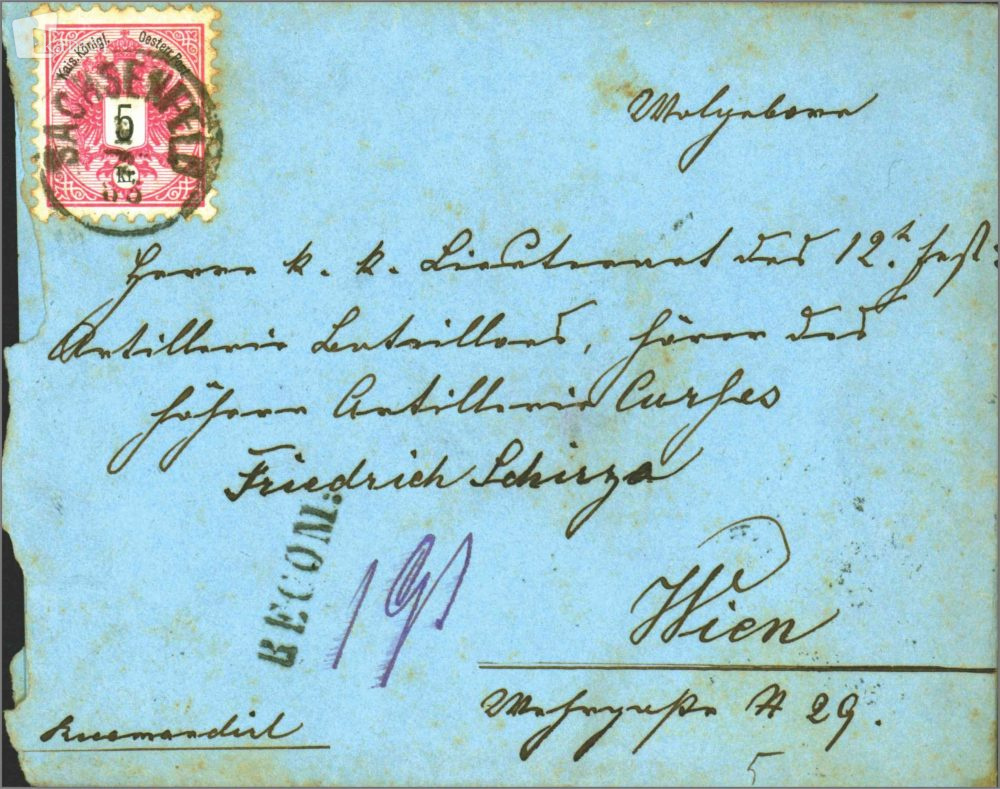 Kais. Königl. Oesterr. Post
SACHSENFELD
5
Kr.
Wolgebore
Herrn k. k. Lieutenant des 12.t Fest.
Artillerie Bataillons, Hörer des
höhern Artillerie Curses
Friedrich Schirza
RECOM:
191
Wien
Wehrgasse N 29.
Recomandirt
5